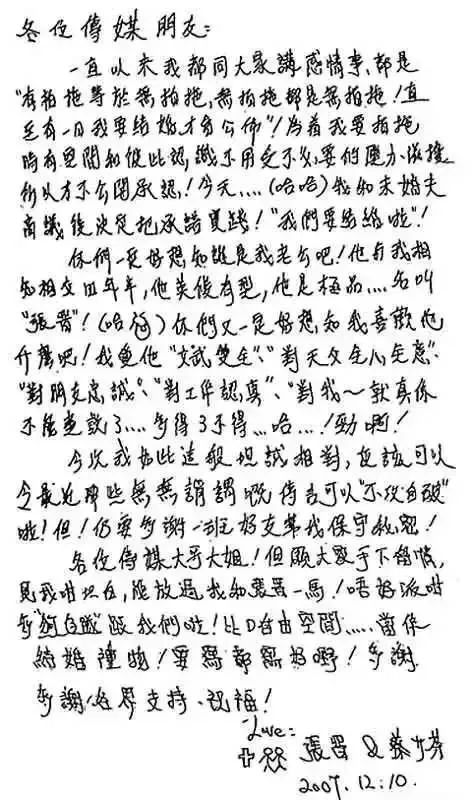 各位傳媒朋友:
一直以來我都同大家講感情事,都是
"有拍拖等於無拍拖,無拍拖都是無拍拖!直
至有一日我要結婚,才會公佈"!為着我要拍拖
時有空間和彼此認識不用受不必要的壓力騷擾
所以才不公開承認!今天....(哈哈)我和未婚夫
商議後決定把承諾實踐!"我們要結婚啦"!
你們一定好想知誰是我老公吧!他與我相
知相交四年半,他英俊有型,他是極品....名叫
"張晋"!(哈哈)你們又一定好想知我喜歡他
什麼吧!我覺他"文武雙全"、"對天父全心全意"、
"對朋友忠誠"、"對工作認真"、"對我~就真係
不能盡說了....多得3不得...哈...!勁啊!
今次我如此這般坦誠相對,應該可以
令最近那些無無謂謂嘅傳言可以"不攻自破"
啦!但!仍要多謝一班好友幫我保守秘密!
各位傳媒大哥大姐!但願大家手下留情,
見我咁坦白,能放過我和張晋一馬!唔好派咁
多"狗仔隊"跟我們啦!比D自由空間.....當係
結婚禮物!要寫都寫好嘢!多謝
多謝!各界支持、祝福!
Love:
張晋 & 蔡少芬
2007.12.10.